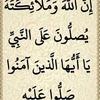 إِنَّ اللَّهَ وَمَلَائِكَتَهُ
يُصَلُّونَ عَلَى النَّبِيِّ
يَا أَيُّهَا الَّذِينَ آمَنُوا
صَلُّوا عَلَيْهِ